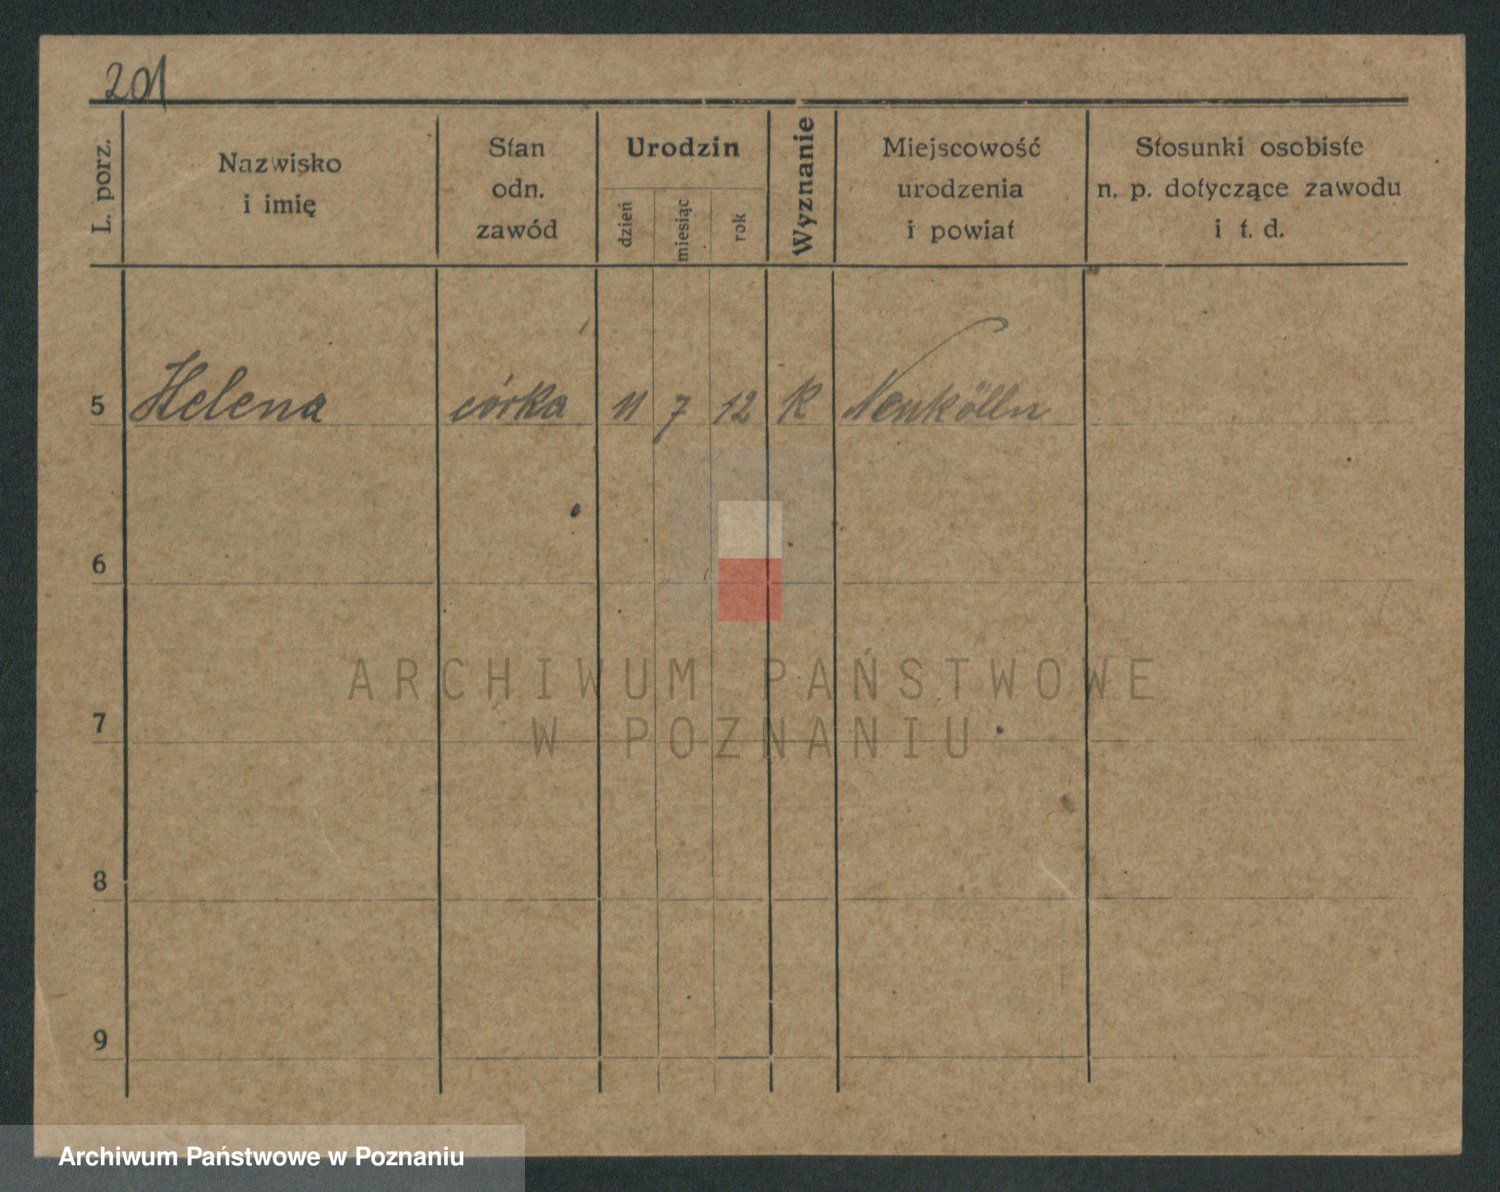 201
L. porz.
Nazwisko
i imię
Stan
odn.
zawód
Urodzin
dzień
miesiąc
rok
Wyznanie
Miejscowość
urodzenia
i powiat
Stosunki osobiste
n. p. dotyczące zawodu
i t. d.
5 Helena córka 11 7 12 K Neukölln
6
7
8
9
ARCHIWUM PAŃSTWOWE
W POZNANIU
Archiwum Państwowe w Poznaniu